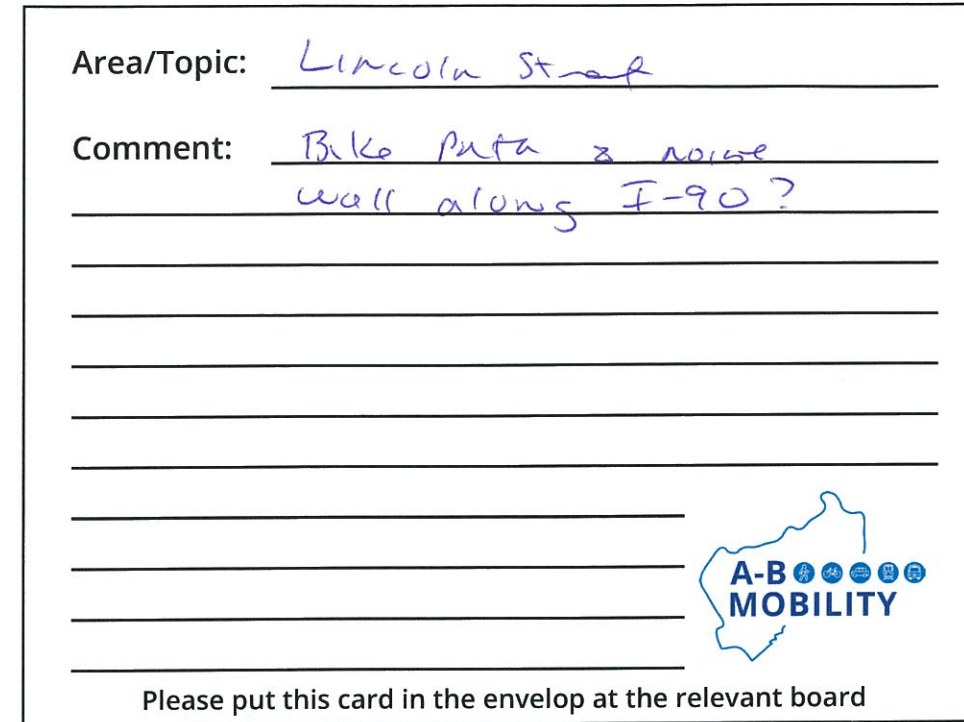 Area/Topic: Lincoln Street
Comment: Bike Path & noise
wall along I-90?
A-B
MOBILITY
Please put this card in the envelop at the relevant board